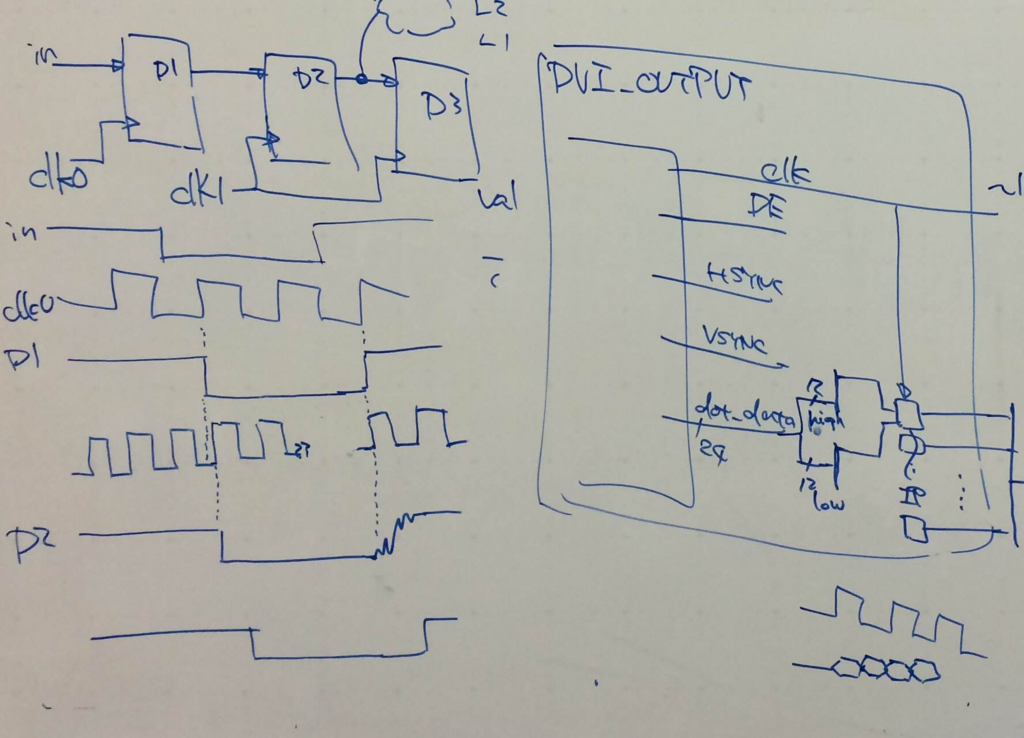 L2
L1
in
D1
D2
D3
clk0
clk1
val
in
clk0
D1
D2
DVI_OUTPUT
clk
DE
HSYNC
VSYNC
dot_data
24
12
high
12
low